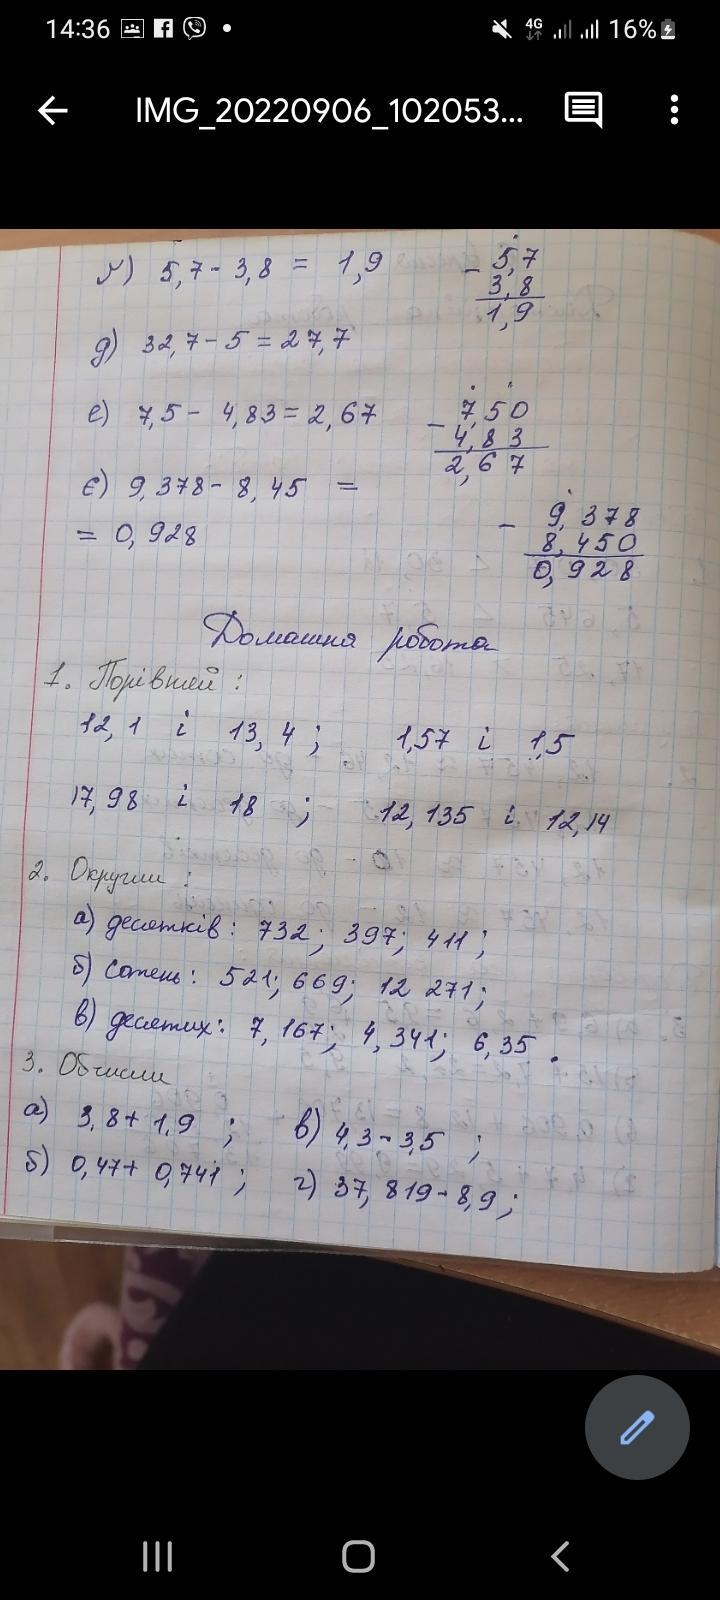 14:36
4G
16%
IMG_20220906_102053...
г) 5,7 - 3,8 = 1,9
- 5,7
3,8
1,9
д) 32,7 - 5 = 27,7
е) 7,5 - 4,83 = 2,67
- 7,50
4,83
2,67
є) 9,378 - 8,45 =
= 0,928
- 9,378
8,450
0,928
Домашня робота
1. Порівняй :
12,1 і 13,4 ; 1,57 і 1,5
17,98 і 18 ; 12,135 і 12,14
2. Округли :
а) десятків : 732 ; 397 ; 411 ;
б) сотень : 521 ; 669 ; 12 271 ;
в) десятих : 7,167 ; 4,341 ; 6,35 .
3. Обчисли
а) 3,8 + 1,9 ; в) 4,3 - 3,5 ;
б) 0,47 + 0,741 ; г) 37,819 - 8,9 ;